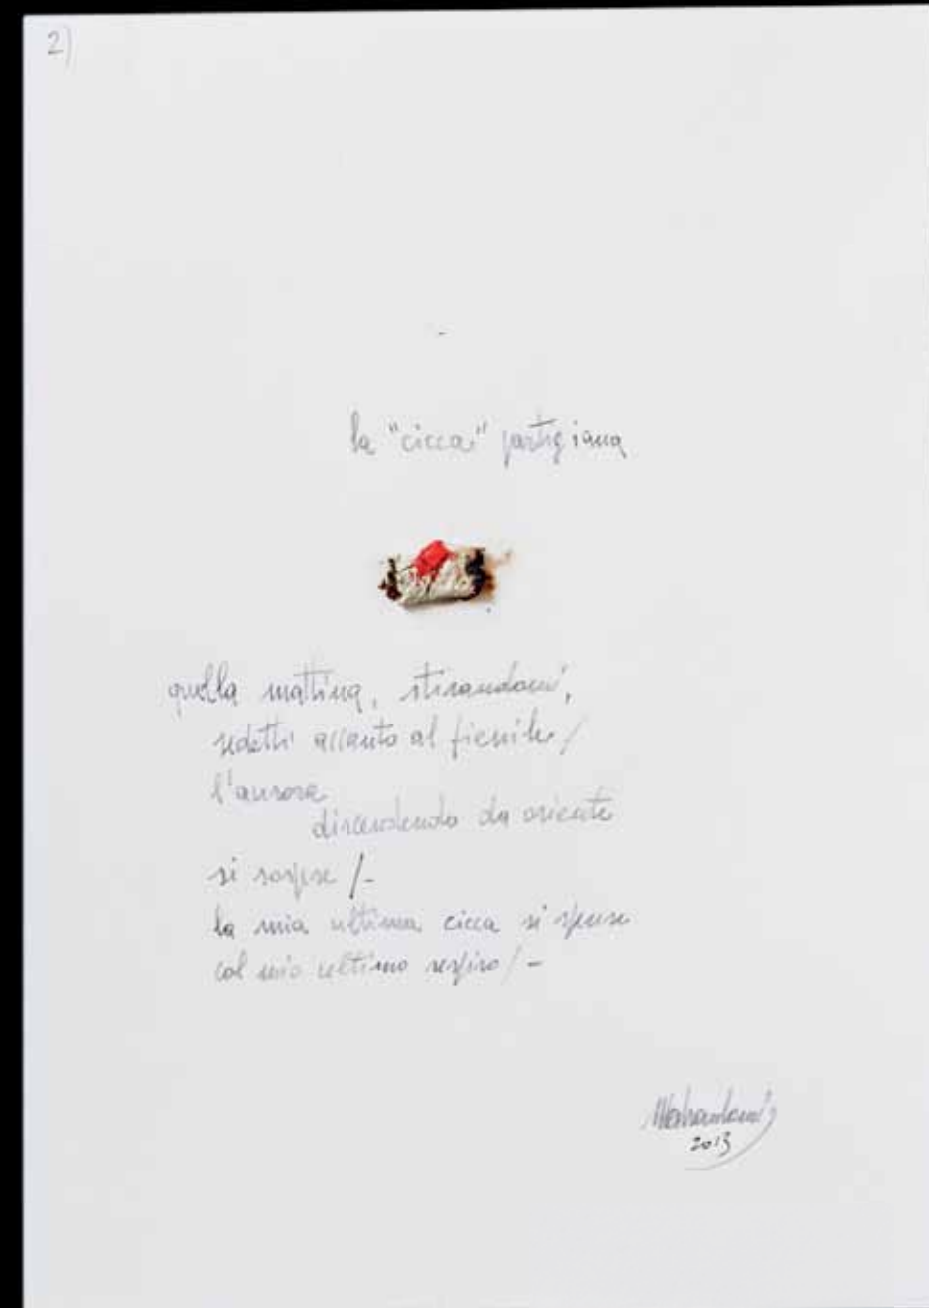 2)
la "cicca" partigiana
quella mattina, stirandomi,
sedetti accanto al fienile/
l'aurora
discendendo da oriente
si sospese /-
la mia ultima cicca si spense
col mio ultimo respiro/-
2013